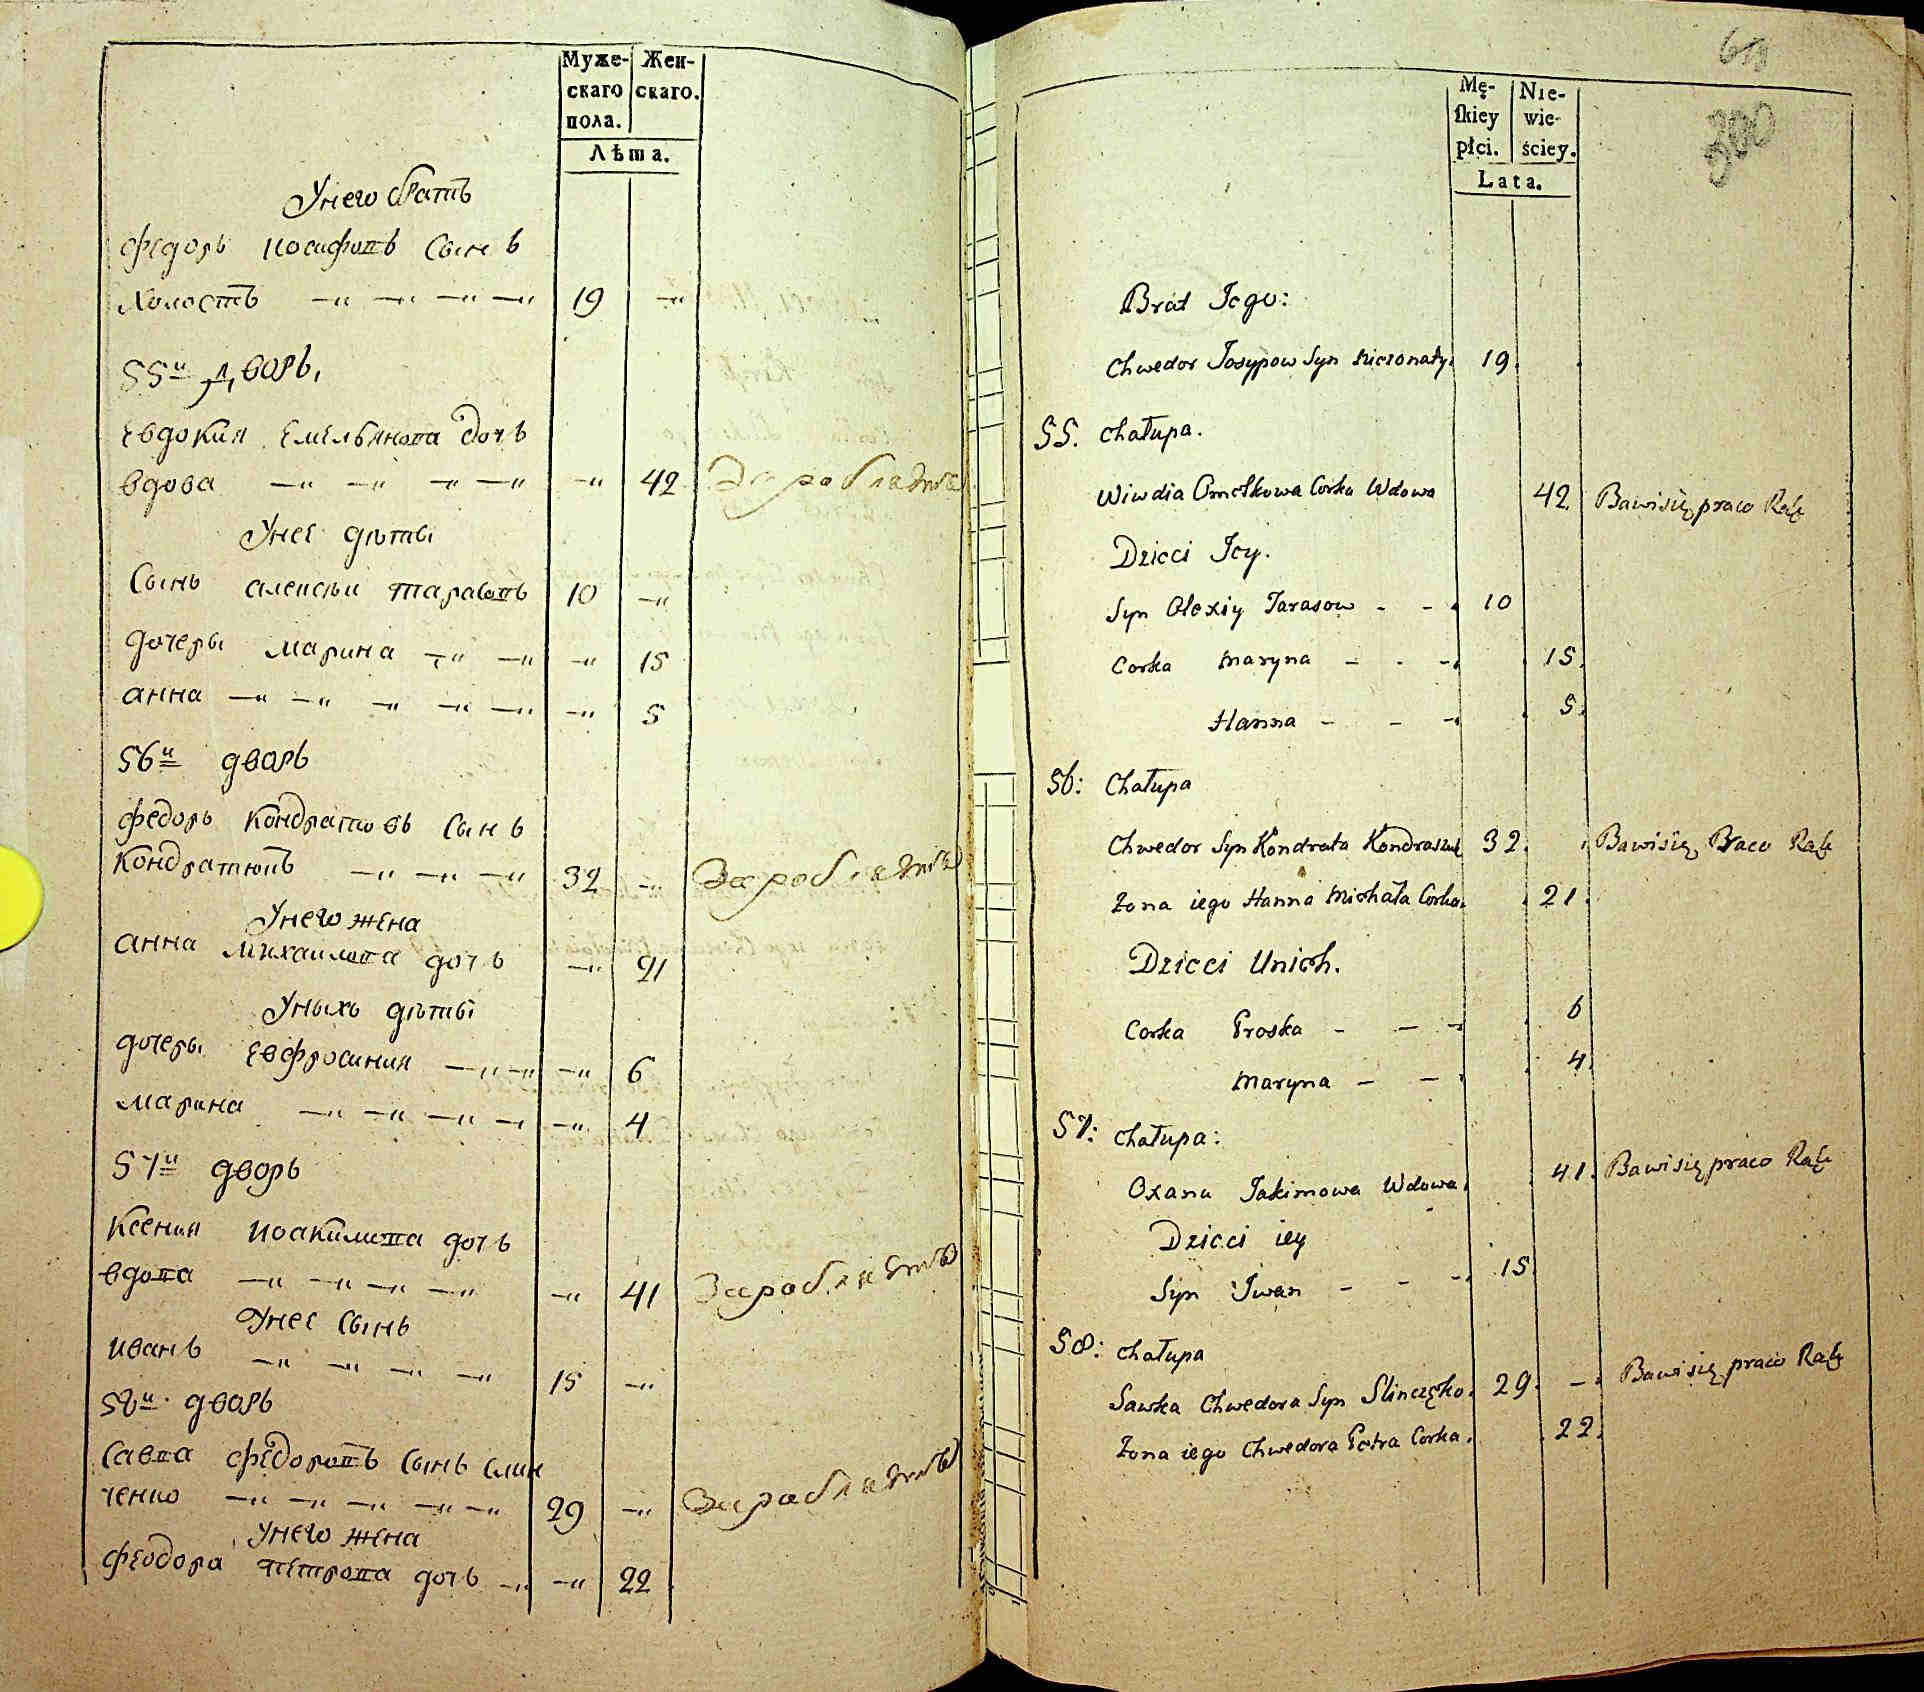 Муже- Жен-
скаго скаго.
пола.
Лѣта.
Унего братъ
Федоръ Иосифовъ Сынъ
холостъ —„ —„ —„ —„ 19 —„
55й дворъ,
Евдокия Емельянова дочь
вдова —„ —„ —„ —„ —„ 42 Заработкѣ
Унеє дѣти
Сынъ алексѣи тарасовъ 10 —„
дочеры марина —„ —„ —„ 15
анна —„ —„ —„ —„ —„ —„ 5
56й дворъ
Федоръ Кондратовъ Сынъ
Кондратювъ —„ —„ —„ 32 —„
Унего жена
анна Михаилова дочь —„ 21
Уныхъ дѣти
дочеры Евфросиния —„ —„ —„ 6
марина —„ —„ —„ — —„ 4
57й дворъ
Ксения Иоакимова дочь
вдова —„ —„ —„ —„ —„ 41
Унеє Сынъ
иванъ —„ —„ —„ —„ 15 —„
58й дворъ
Савва Федоровъ Сынъ Слин
ченко —„ —„ —„ —„ —„ 29 —„
Унего жена
Феодора петрова дочь —„ —„ 22
61
300
Mę- Nie-
skiey wie-
płci. ściey.
Lata.
Brat Jego:
Chwedor Josypow Syn nieżonaty. 19.
55. Chałupa.
Wiwdia Omelkowa Corka Wdowa 42 Bawi się praco Rąk
Dzieci Jey.
Syn Olexiy Tarasow - - 10
Corka Maryna - - - 15.
Hanna - - - 5.
56: Chałupa
Chwedor Syn Kondrata 32. Bawi się Praco Rąk
Żona iego Hanna Michała Corka. 21.
Dzieci Unich.
Corka Proska - - - 6
Maryna - - 4.
57: Chałupa:
Oxana Jakimowa Wdowa. 41. Bawi się praco Rąk
Dzieci iey
Syn Iwan - - - 15.
58: Chałupa
Sawka Chwedora Syn Slinczęko. 29. - Bawi się praco Rąk
Żona iego Chwedora Petra Corka. 22.